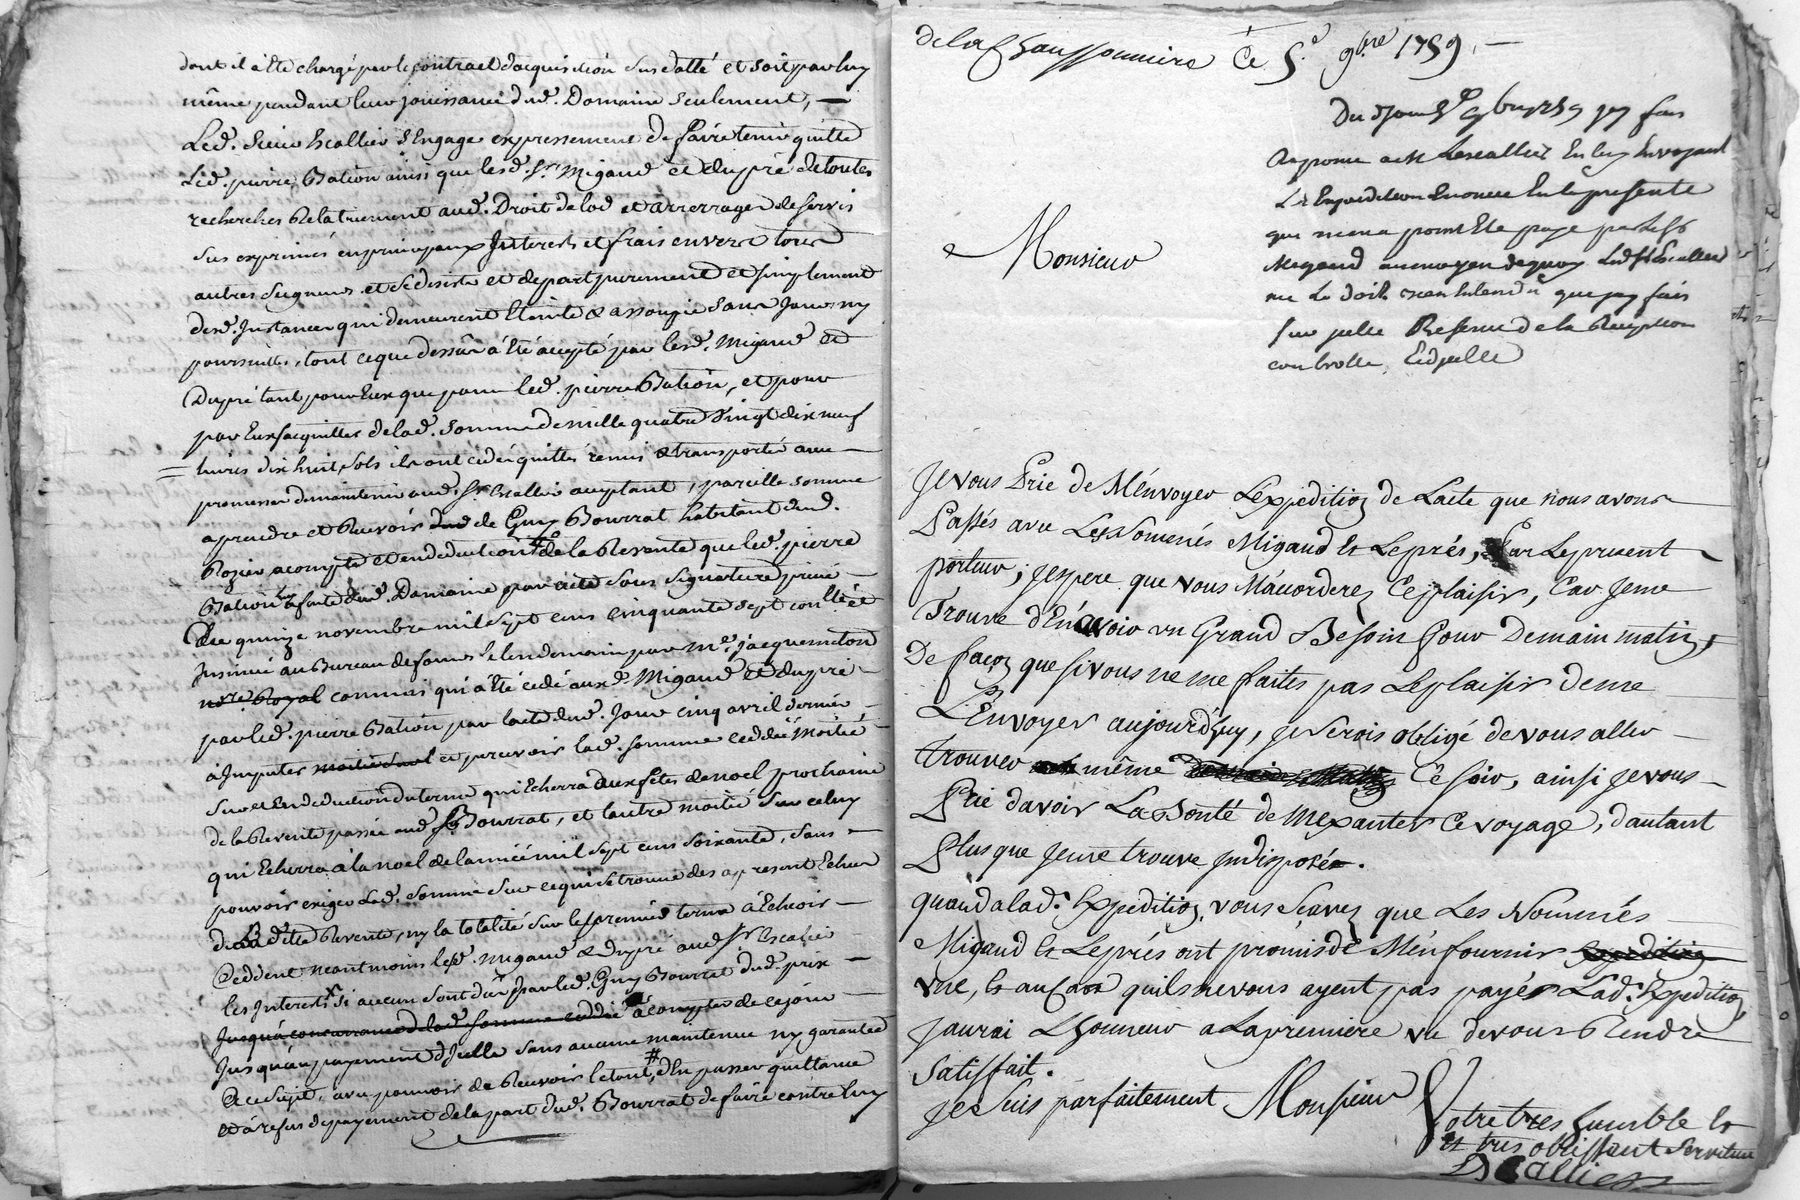 dont il a été chargé par le contract d'acquisition sus datté et soit par luy
même pendant leur jouissance dud. Domaine seulement, —
Led. Sieur Escallier s'engage expressement de faire tenir quitte
Led. pierre Bation ainsi que lesd. Srs Migaud et dupré de toutes
recherches Relativement aud. Droit de lod et arrerrages de servis
sus exprimés en principaux Interests et frais envers tous
autres Seigneurs et se desiste et depart purement et simplement
desd. Instances qui demeurent Eteinte & assoupie sans
poursuittes, tout ce que dessûs a été accepté par lesd. Migaud et
Dupré tant pour Eux que pour led. pierre Bation, et pour
par Eux s'acquitter de lad. somme de mille quatre vingt dix neuf
livres dix huit sols ils ont cédé quitté remis & transporté avec —
promesse de maintenir aud. Sr Escallier acceptant, pareille somme
a prendre et Recevoir de Guy Bourrat habitant dud.
Rozier acompte et en deduction de la Revente que led. pierre
Bation a faite dud. Domaine par acte sous signature privé —
du quinze novembre mil sept cens cinquante sept conllé et
Insinué au Bureau de le lendemain par me. jacquemeton
nore. Royal commis qui a été cédé auxd. Migaud et dupré —
par led. pierre Bation par acte dud. Jour cinq avril dernier —
a Imputer et percevoir lad. somme cedée moitié —
sur et en deduction du terme qui Echerra aux fêtes de noel prochaine
de la Revente passée aud Sr Bourrat, et l'autre moitié sur celuy
qui Echerra à la noel de lannée mil sept cens soixante, sans —
pouvoir exiger Lad. somme sur ce qui se trouve des apresent Echeu
de Ladite Revente, ny la totalité sur le premier terme à Echeoir —
Cèddent neantmoins lesd. migaud & Dupré aud Sr Escallier
les Interests si aucun sont dûs par led. Guy Bourrat dud. prix —
Jusqua concurrance de lad. somme ceddée a compter de ce jour —
Jusqu'au payement d'Icelle sans aucune maintenue ny garantie
a ce sujet, avec pouvoir de Recevoir le tout, # d'En passer quittance
et à refus de payement de la part dud. Bourrat de faire contre luy
de la Chaussonniere Ce 5.e 9bre 1759. —
Du d jour 5e 9bre 1759 jay fait
Reponse a M Lescallier En luy Envoyant
L'Expedition Enoncée En la presente
qui ne ma point Eté payé par led Sr
Migaud au moyen de quoy Led Sr Escallier
me La doit bien Entendu que jay fait
sur icelle Reserve de la Reception
controlle, Eidjuelle
Monsieur
Je vous Prie de M'énvoyer L'éxpédition de L'acte que nous avons
Passés avec Les Nommés Migaud & Leprés, Par Le present
porteur; j'espere que vous M'accorderez Ce plaisir, Car Je me
Trouve d'En avoir un Grand Besoin Pour Demain matin,
De façon que si vous ne me faites pas Le plaisir de me
L'Envoyer aujourd'huy, je serois obligé de vous aller —
trouver même Ce soir, ainsi je vous —
Prie d'avoir La Bonté de M'exanter Ce voyage, d'autant
Plus que Je me trouve jndisposée.
quand a lad. Expedition, vous Scavez que Les Nommés
Migaud & Leprés ont promis de M'en fournir Expedition
une, & au Cas quils ne vous ayent pas payés Lad. Expedition,
J'aurai L'honneur a La premiere vu de vous Rendre
Satisfait.
Je Suis parfaitement Monsieur
Votre tres humble &
& tres obeissant Serviteur
Escallier